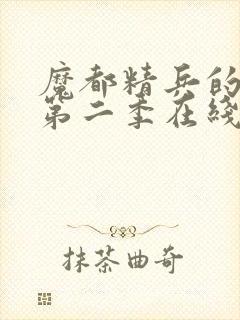 魔都精兵的
第二季在线
抹茶曲奇